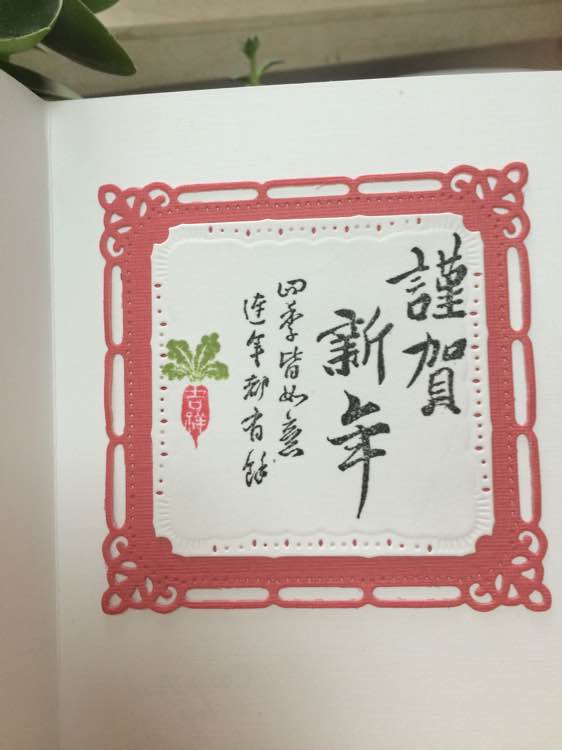 謹賀
新年
四季皆如意
連年都有餘
吉祥